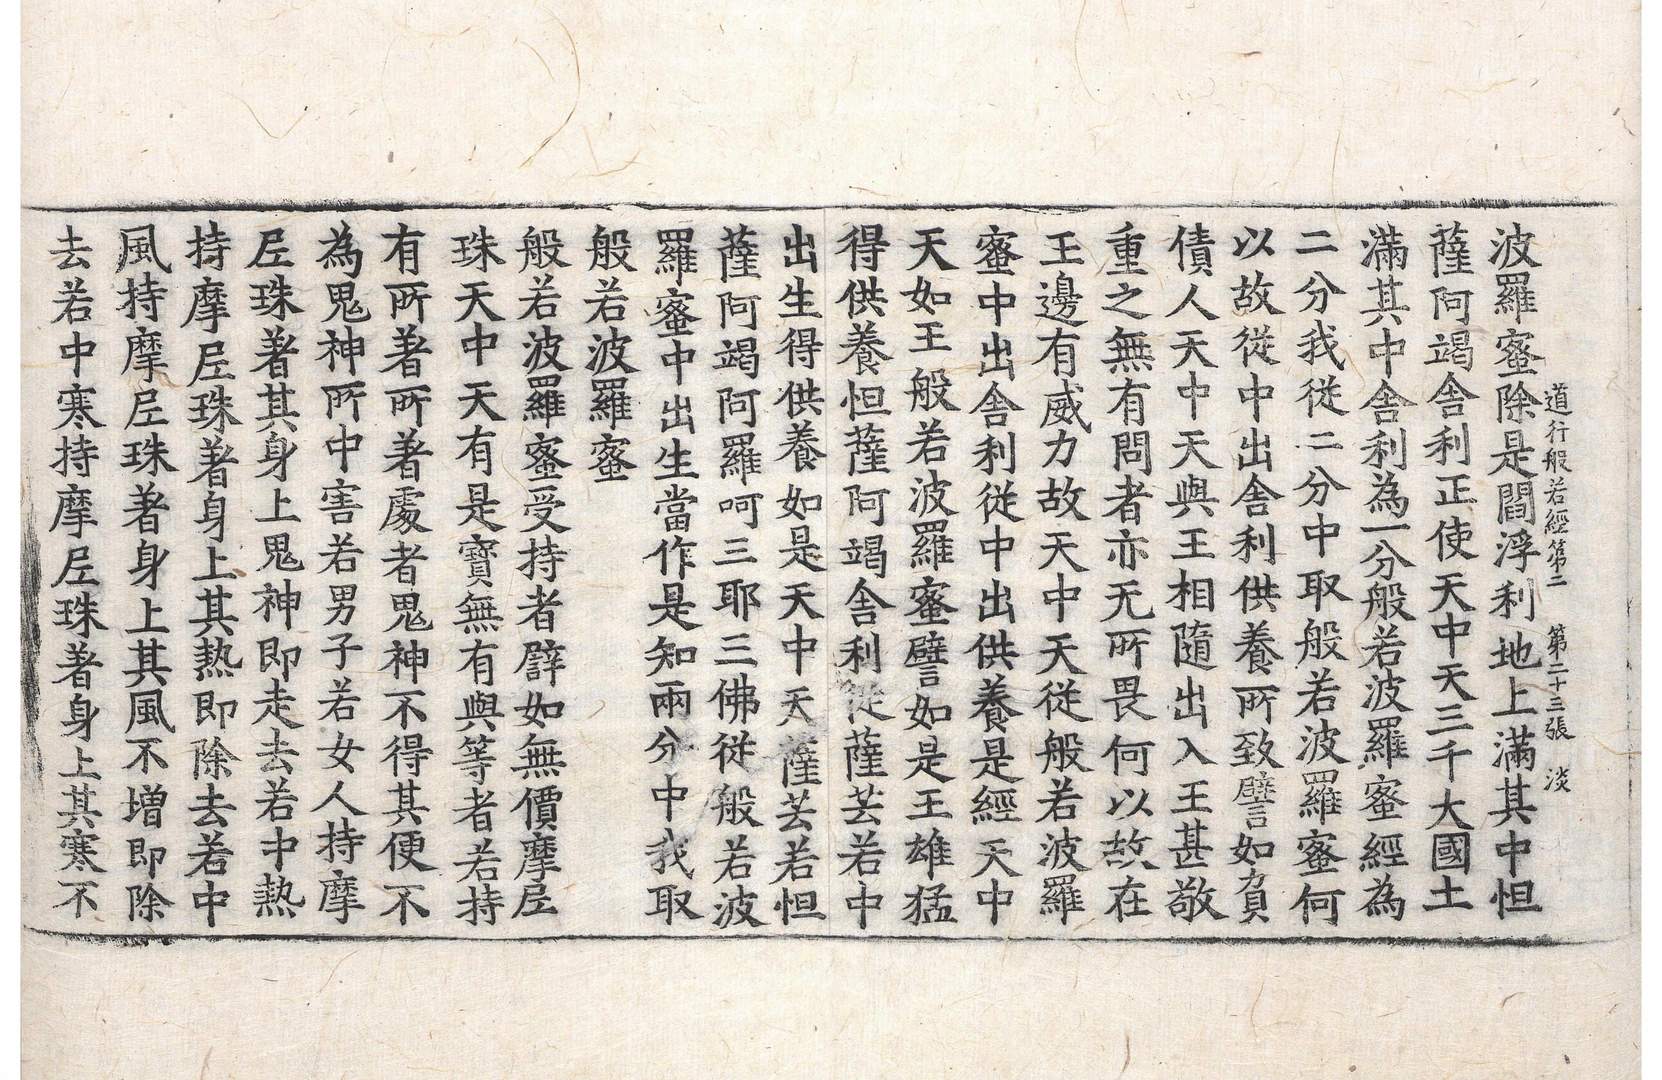 道行般若經第二　第二十三張　淡
波羅蜜除是閻浮利地上滿其中怛
薩阿竭舍利正使天中天三千大國土
滿其中舍利為一分般若波羅蜜經為
二分我從二分中取般若波羅蜜何
以故從中出舍利供養所致譬如負
債人天中天與王相隨出入王甚敬
重之無有問者亦无所畏何以故在
王邊有威力故天中天從般若波羅
蜜中出舍利從中出供養是經天中
天如王般若波羅蜜譬如是王雄猛
得供養怛薩阿竭舍利從薩芸若中
出生得供養如是天中天薩芸若怛
薩阿竭阿羅呵三耶三佛從般若波
羅蜜中出生當作是知兩分中我取
般若波羅蜜
般若波羅蜜受持者譬如無價摩尼
珠天中天有是寶無有與等者若持
有所著所著處者鬼神不得其便不
為鬼神所中害若男子若女人持摩
尼珠著其身上鬼神即走去若中熱
持摩尼珠著身上其熱即除去若中
風持摩尼珠著身上其風不增即除
去若中寒持摩尼珠著身上其寒不